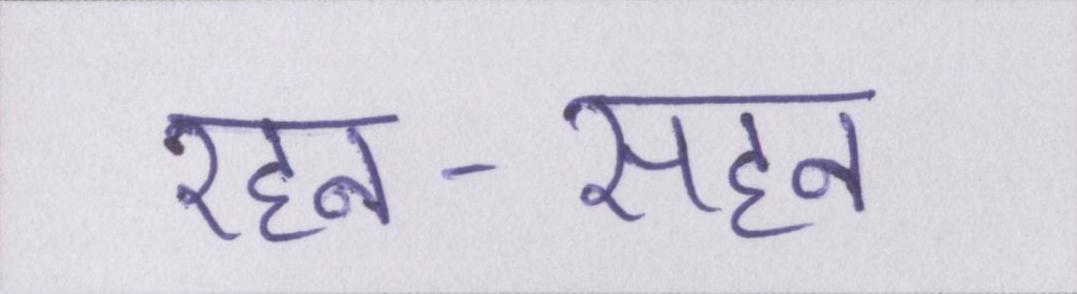 रहन - सहन